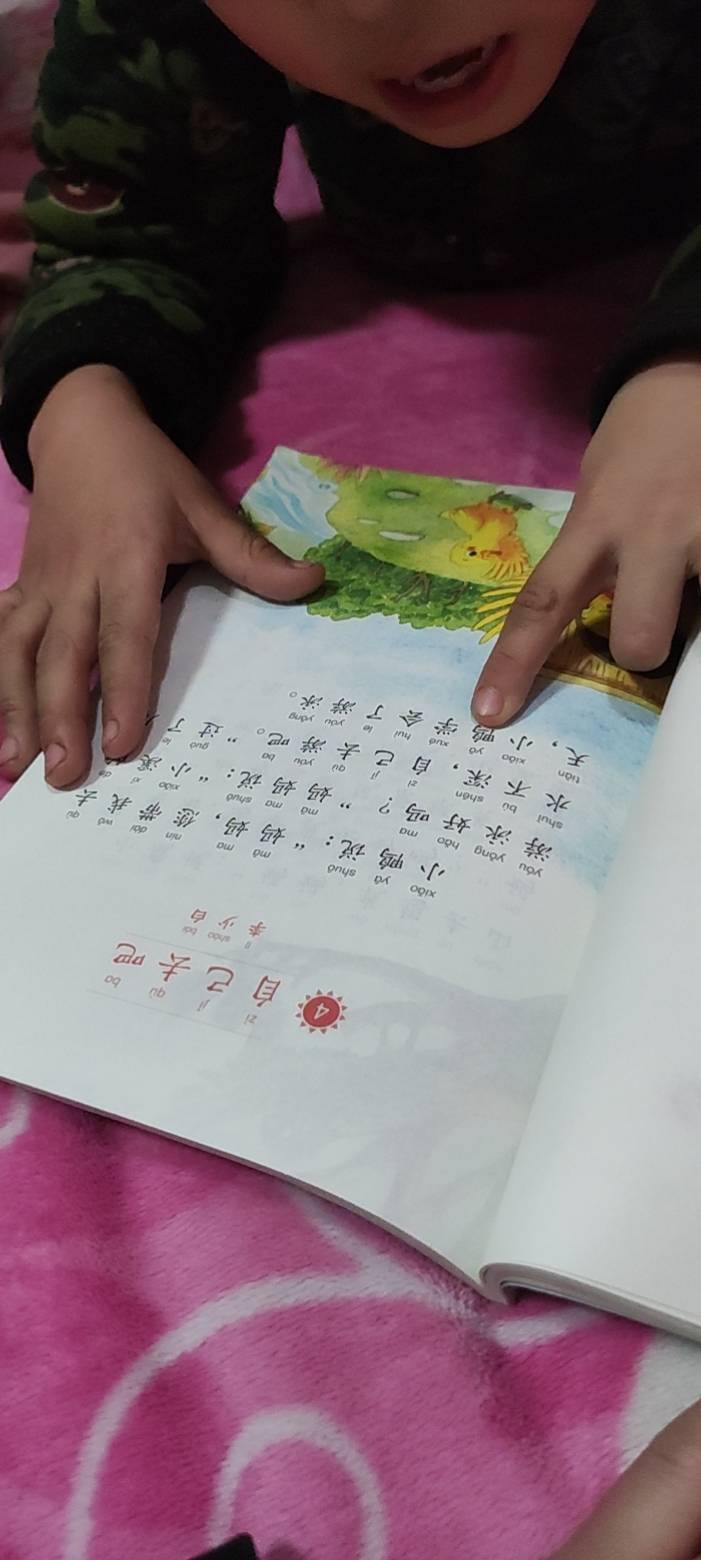 zì jǐ qù ba
4 自己去吧
lǐ shào bái
李少白
xiǎo yā shuō mā ma nín dài wǒ qù
小鸭说:“妈妈,您带我去
yóu yǒng hǎo ma mā ma shuō xiǎo xī
游泳好吗?”妈妈说:“小溪
shuǐ bù shēn zì jǐ qù yóu ba guò le
水不深,自己去游吧。”过了
tiān xiǎo yā xué huì le yóu yǒng
天,小鸭学会了游泳。